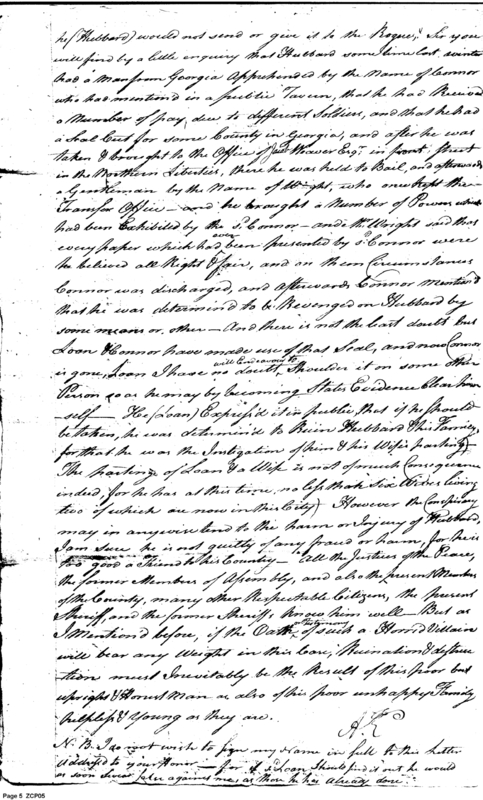 he (Hubbard) would not send or give it to the Rogue; for you
will find by a little enquiry that Hubbard some time last winter
had a Man from Georgia Apprehended by the Name of Connor
who had mention'd in a public Tavern, that he had Received
a Number of pay, due to different Soldiers, and that he had
a Seal Cut for some County in Georgia, and after he was
taken & brought to the Office of Weaver Esqr. in front Street
in the Northern Liberties, there he was held to Bail, and afterwards
a Gentleman by the Name of Wright, who once kept the
Transfer Office - and he brought a Number of Powers which
had been Exhibited by the sd. Connor - and the Wright said that
every paper which had ever been presented by sd. Connor were
he believed all Right & fair, and on them Circumstances
Connor was discharged, and afterwards Connor mentioned
that he was determin'd to be Revenged on Hubbard by
some means or other - And there is not the least doubt but
Loan & Connor have made use of that Seal, and now Connor
is gone, Loan I have no doubt, will Endeavour to Shoulder it on some other
Person so as he may by becoming States Evidence Clear him
self - He (Loan) Express'd it in public that if he should
be taken, he was determind to Ruin Hubbard & his Family,
for that he was the Instigation of him & his Wife's parting)
The parting of Loan & a Wife is not of much Consequence
indeed, for he has at this time no less than Six Wives living
two of which are now in this City) However the Conspiracy
may in anywise tend to the harm or Injury of Hubbard,
I am Sure he is not guilty of any fraud or harm, for he is
too good a Friend to his Country - All the Justices of the Peace,
the former Members of Assembly, and also the present Members
of the County, many other Respectable Citizens, the present
Sheriff, and the former Sheriffs know him well - But as
I Mention'd before, if the Oath, or testimony of such a Horrid Villain
will bear any Weight in this Case, Ruination & destruc
tion must Inevitably be the Result of this poor but
upright & Honest Man as also of his poor unhappy Family
helpless & Young as they are.
AZ
N.B. I do not wish to sign my Name in full to this Letter
Address'd to your Honor - for if sd. Loan Should find it out he would
as soon Swear false against me, as than he has already done.
Page 5 ZCP05